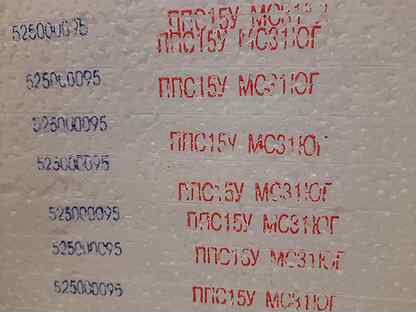 ППС15У МС31ЮГ
525000095 ППС15У МС31ЮГ
525000095 ППС15У МС31ЮГ
525000095 ППС15У МС31ЮГ
525000095 ППС15У МС31ЮГ
525000095 ППС15У МС31ЮГ
525000095 ППС15У МС31ЮГ
525000095 ППС15У МС31ЮГ